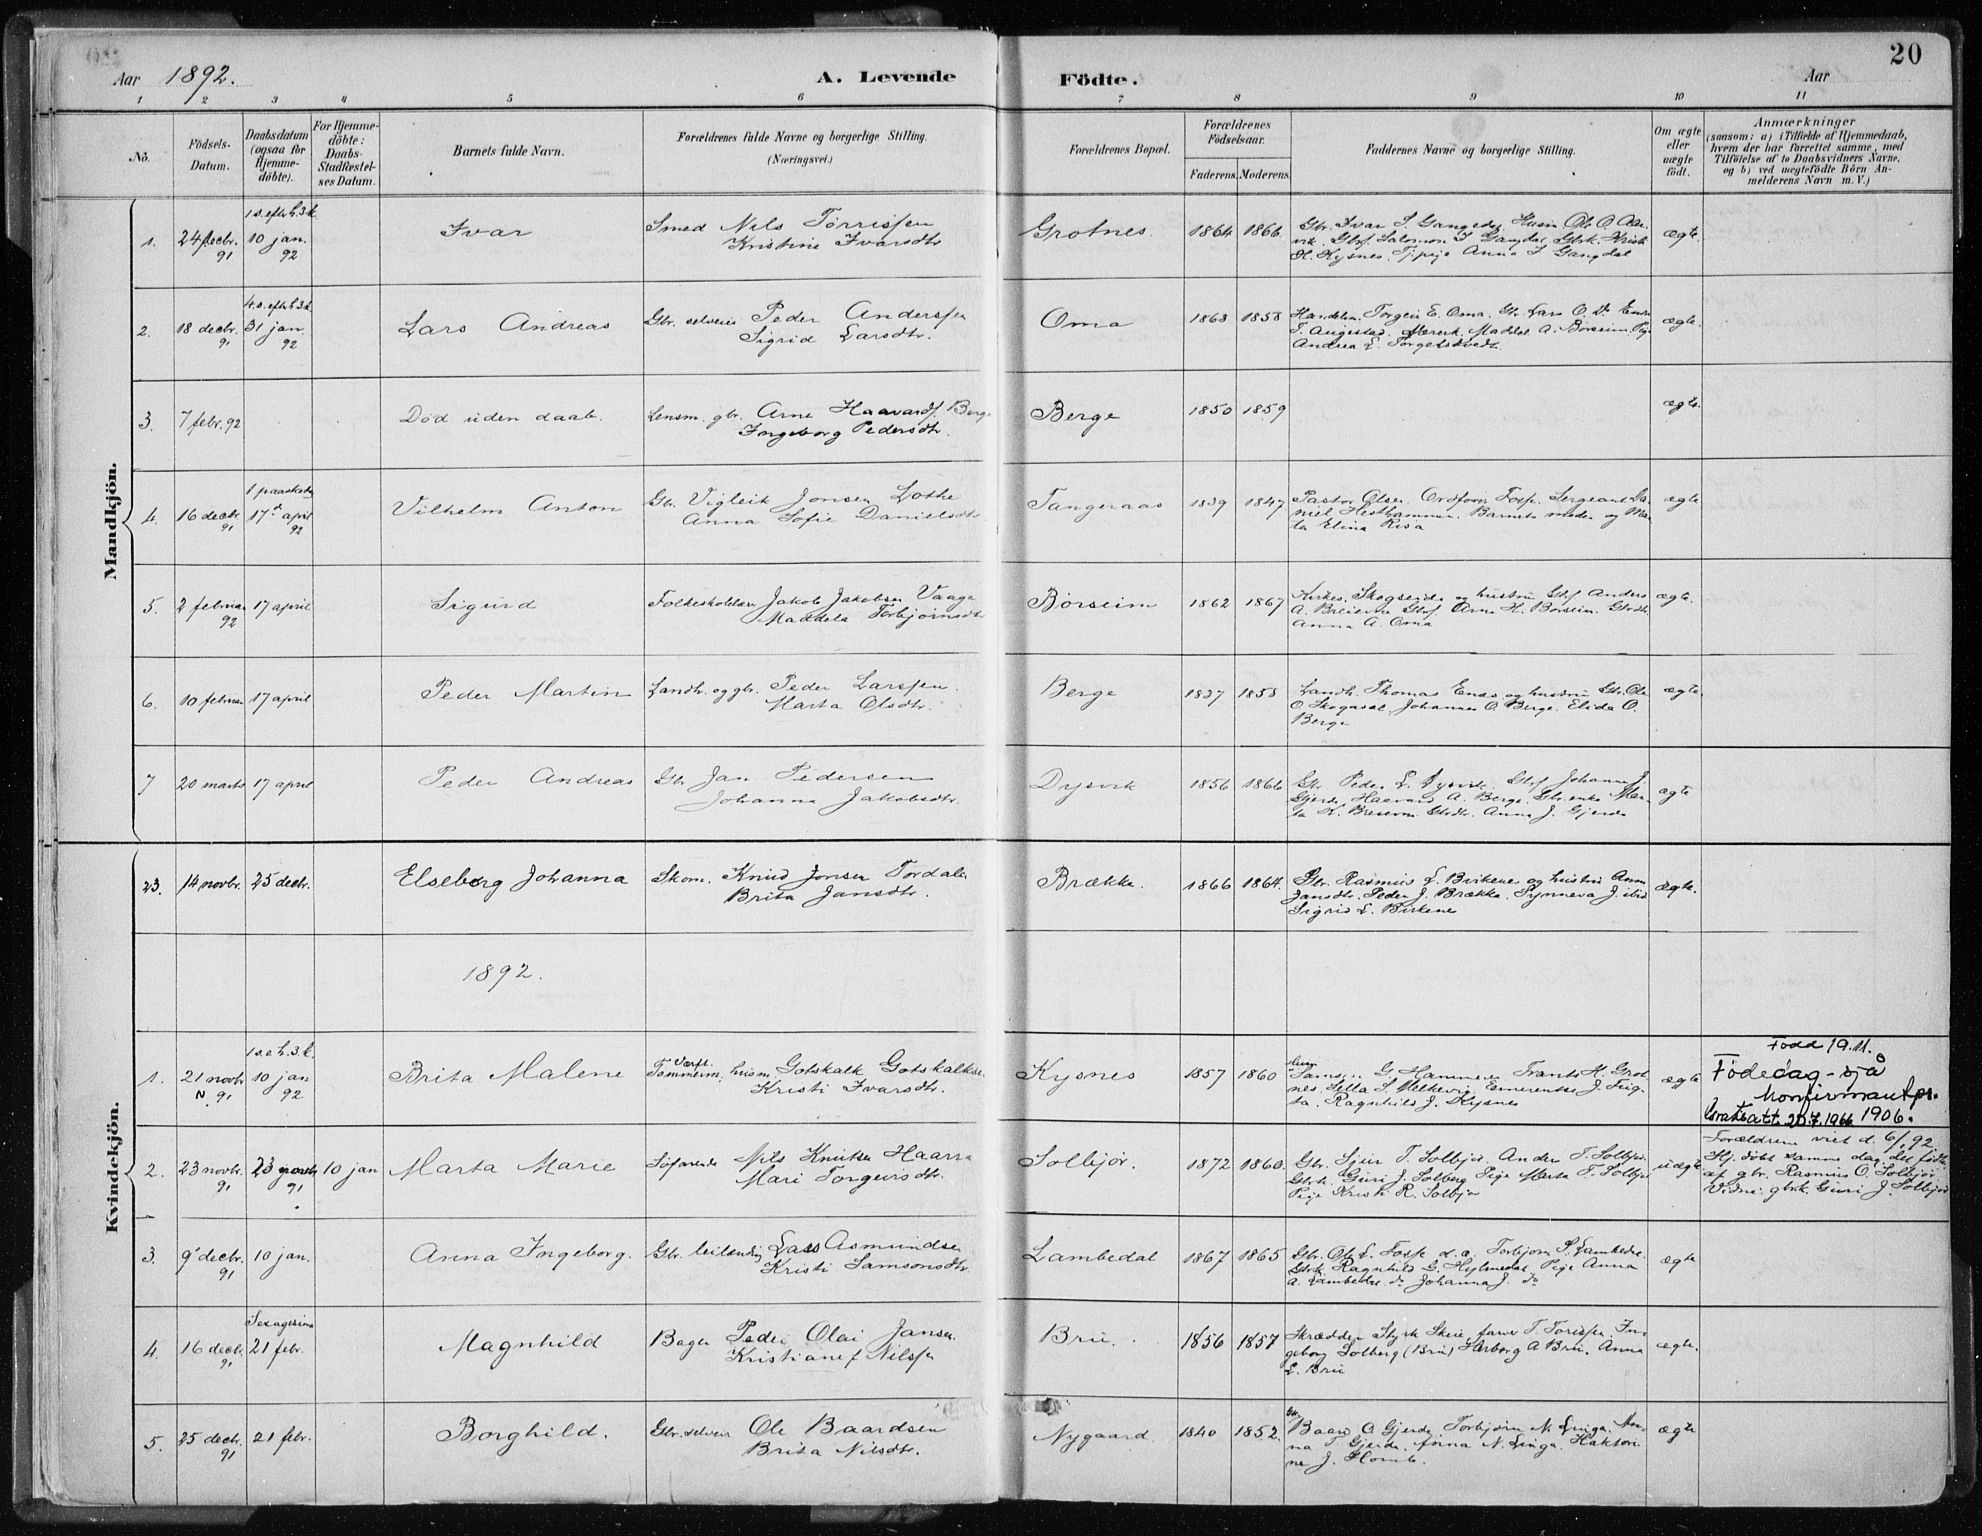 20
Aar 1892.
A. Levende Födte.
Aar
1 2 3 4 5 6 7 8 9 10 11
No.
Födsels-Datum.
Daabsdatum (ogsaa for Hjemme-döbte).
For Hjemme-döbte: Daabs-Stadfæstel-ses Datum.
Barnets fulde Navn.
Forældrenes fulde Navne og borgerlige Stilling. (Næringsvei.)
Forældrenes Bopæl.
Forældrenes Födselsaar.
Faderens. Moderens.
Faddernes Navne og borgerlige Stilling.
Om ægte eller uægte födt.
Anmærkninger
(saasom: a) i Tilfælde af Hjemmedaab, hvem der har forrettet samme, med Tilföielse af to Daabsvidners Navne, og b) ved uægtefödte Börn Anmelderens Navn m. V.)
Mandkjön.
1. 24 decbr. 91
1 s. efter h. 3 k. 10 jan. 92
Ivar
Smed Nils Tørrissen
Kristine Ivarsdtr
Grotnes. 1864 1866.
ægte.
2. 18 decbr. 91
4. s. efter h. 3 k. 31 jan. 92
Lars Andreas
Gbr. selveier Peder Anderssen
Sigrid Larsdtr.
Oma 1863 1858
Handelsm. Torgeir E. Oma. Gbr. Lars O. Do
T. Augestad. Maddel A. Børseim.
Andrea L. Torgelstveit.
ægte.
3. 7 febr. 92
Død uden daab.
Lensm. gbr. Arne Haavards. Berge
Ingeborg Pedersdtr.
Berge 1850 1859
ægte.
4. 16 decbr 91
1 paaskedag 17de april 92
Vilhelm Anton
Gbr. Vigleik Jonsen Lothe
Anna Sofie Danielsdtr
Tangeraas 1839 1847
Pastor Olsen Ordfører Fosse. Sergeant Da-
niel Hesthammer. Barnets moder og Mar-
ta Elina Risa
ægte
5. 2 februar 92
17 april
Sigurd
Jakob Jakobsen Vaage
Maddela Torbjørnsdtr
Børseim 1862 1867
Kirkes. Skogseide og hustru Gbf Anders
A. Breievne Gbf. Arne H. Børseim. Gbrdtr.
Anna A. Oma
ægte.
6. 10 februar 17 april
Peder Martin
Landh. og gbr. Peder Larssen.
Marta Olsdtr.
Berge 1837 1853
Landh. Thomas Enes og hustru Gbr. Ole
O Skogasel. Johannes O. Berge. Elida O.
Berge
ægte.
7 20 marts 17 april
Peder Andreas
Gbr Jan Pedersen
Johanna Jakobsdtr.
Dysvik 1856 1866
Gbr. Peder L. Dysvik. Gbf. Johannes J.
Gjerde, Haavard A. Berge. Gbr.enke Mar-
ta K. Anna J. Gjerde
ægte
Kvindekjön.
23. 14 novbr. 25 decbr.
Elseberg Johanna
Skom. Knud Jonsen Tordalen
Brita Jansdtr.
Brække. 1866 1864.
Gbr. Rasmus L. Birkene og hustru Anna
Jansdtr. Peder J. Brække. Synneva J. ibid
Sigrid L. Birkenes
ægte.
1892.
1. 21 novbr N. 91
1 s. e h. 3. k. 10 jan 92
Brita Malene
Værft Tømmerm. husm. Gotskalk Gotskalksen
Kristi Ivarsdtr.
Kysnes 1857 1860
Samson G Hammer Frants H. Grot-
nes
ta. Ragnhild J. Kysnes
ægte
Född 19.11.
Fødedag - sjå
konfirmant pr.
1906.
20.7.1966
2. 23 novbr. 91
23 novbr 91
10 jan
Marta Marie
Søfarende Nils Knutsen Haarra
Mari Torgeirsdtr.
Solbjør. 1872 1860.
Gbr. Sjur T. Solbjør. Anders T. Solbjør.
Gbrk. Guri J. Solberg Pige Marta T. Solbjør
Pige Kristi R. Solbjør
uægte
Forældrene viet d. 6/1 92
Hj. døbt samme dag det fødtes
af gbr. Rasmus O. Solbjør
Vidne: gbrk. Guri J. Solbjør
3 9 decbr. 91
10 jan.
Anna Ingeborg.
Gbr. leilending Lars Asmundsen
Kristi Samsonsdtr.
Lambedal 1867 1865
Gbr. Ole L. Fosse d. æ. Torbjørn S. Lambedal.
Gbrk. Ragnhild G. Hylmedal. Pige Anna
A. Lambedal do Johanna J. do
ægte
4. 16 decbr. 91
Sexagesima 21 febr.
Magnhild
Bager Peder Olai Jansen
Kristiane f Nilssen
Bru. 1856 1857
Skrædder Styrk Skeie, farver T. Torissen. In-
geborg Solberg (Bru) Herborg A Bru. Anna
L. Bru
ægte.
5. 25 decbr. 91
21 febr.
Borghild.
Gbr. selveier Ole Baardsen
Brita Nilsdtr.
Nygaard. 1840 1852.
Gbr. Baard O Gjerde. Torbjørn N. Linga. An-
na T Gjerde. Anna N. Linga.
ne J.
ægte